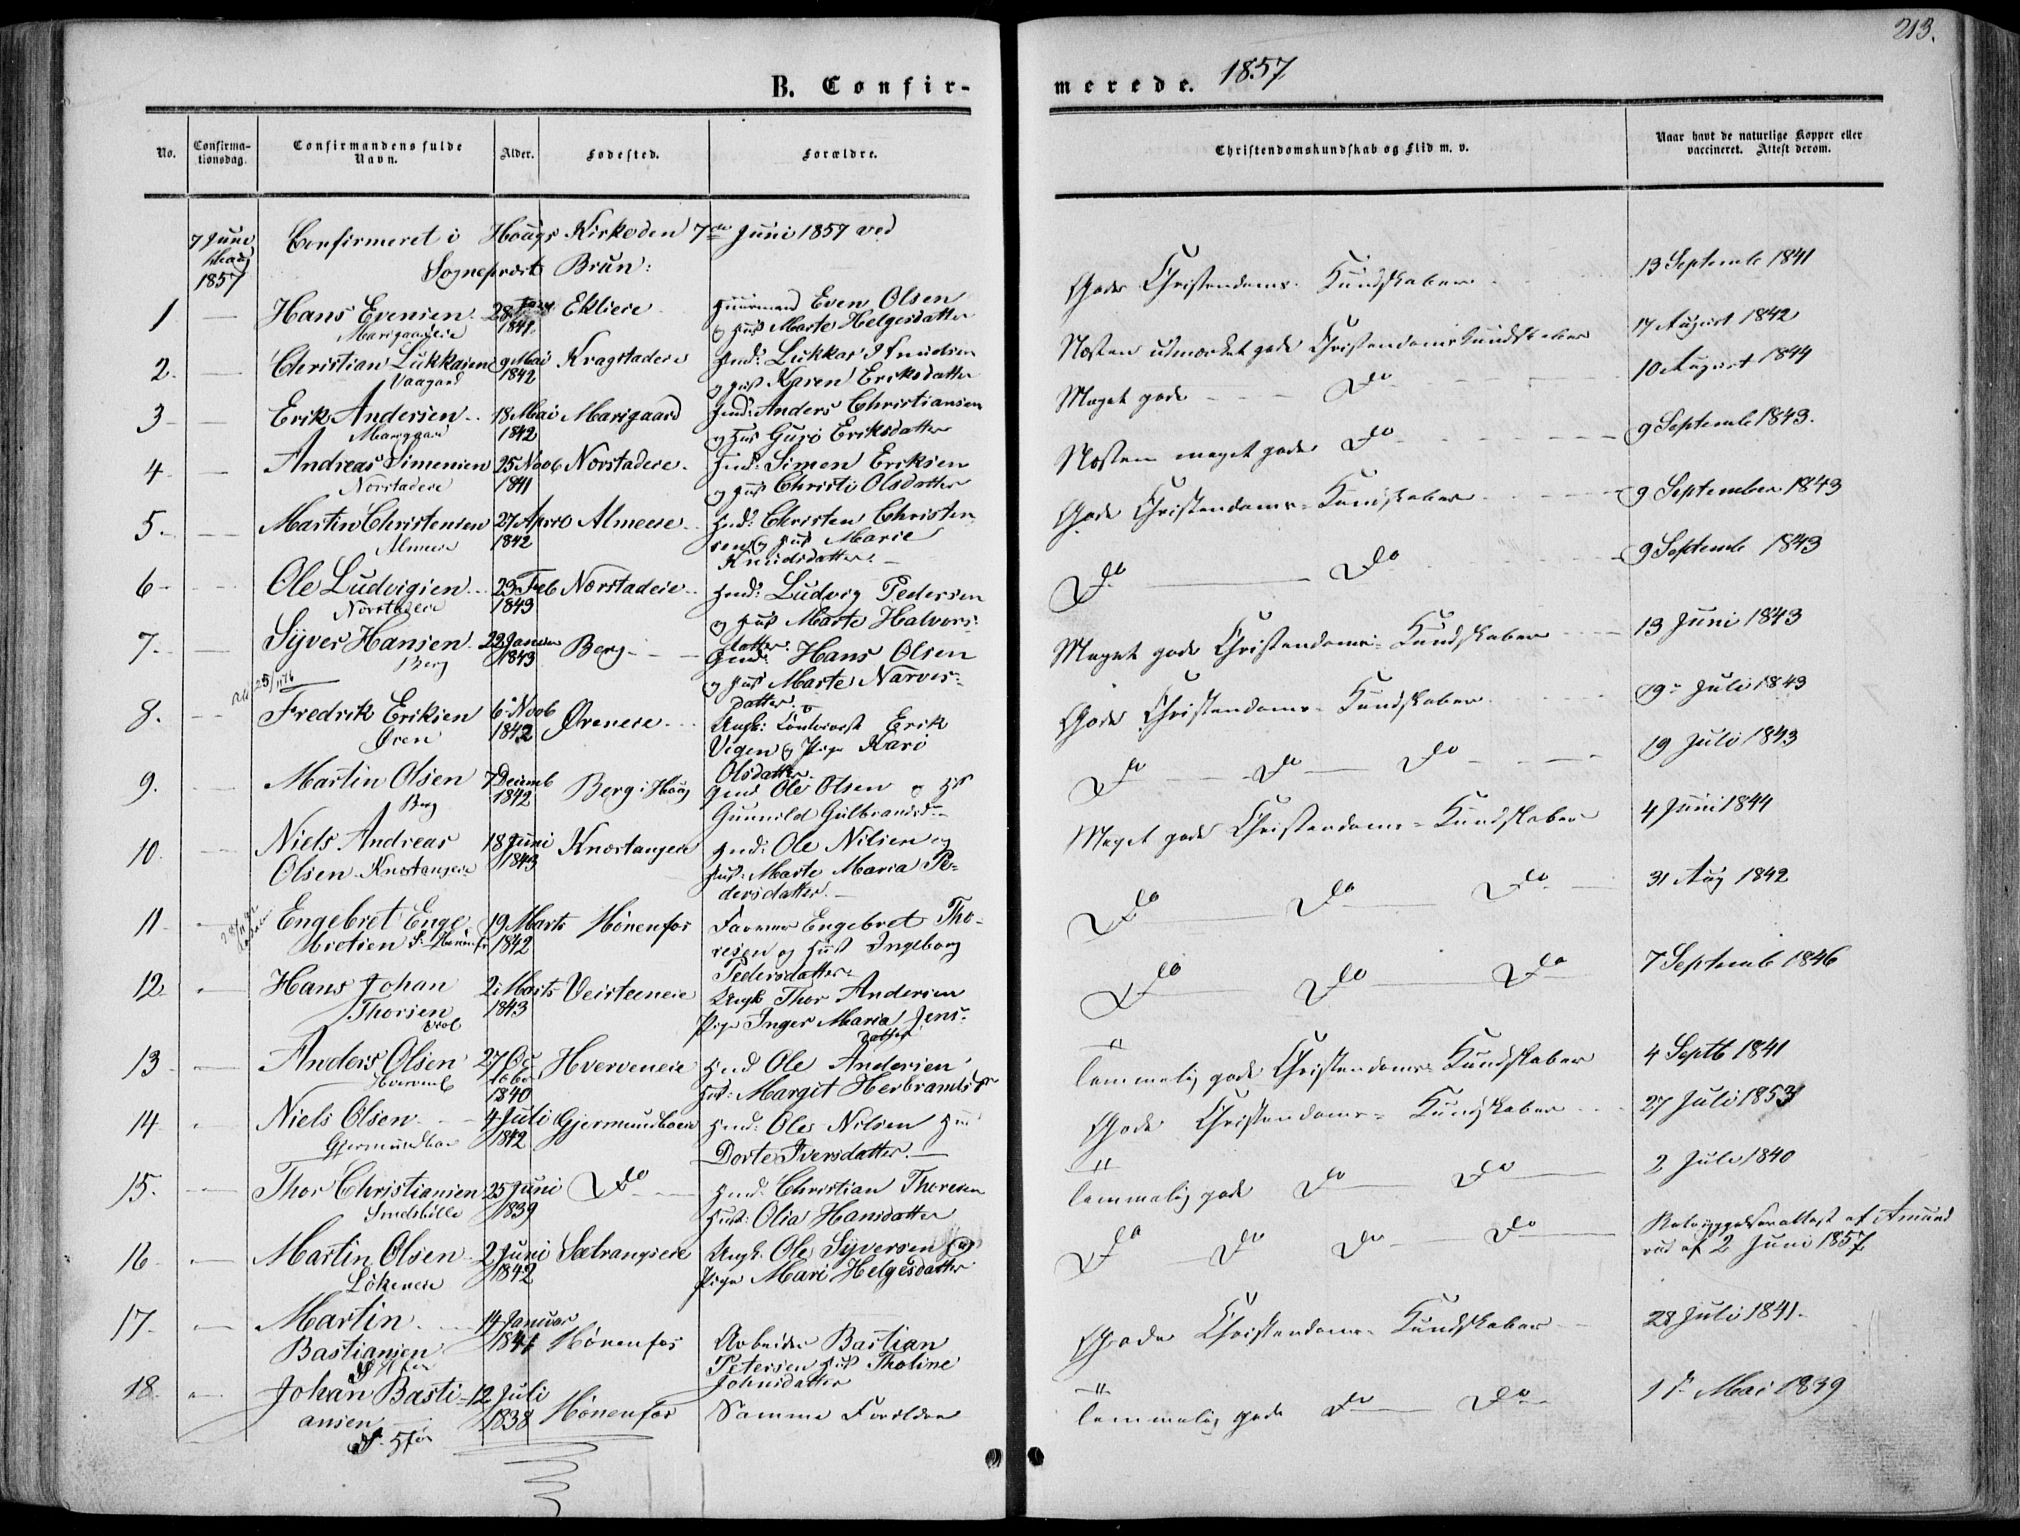 213.
B. Confirmerede. 1857
No. Confirmationsdag. Confirmandens fulde Navn. Alder. Fødested. Forældre. Christendomskundskab og Flid m. v. Naar havt de naturlige Kopper eller vaccineret. Attest derom.
7 Juni
1857
Confirmeret i Hougs Kirke den 7de Juni 1857 ved
Sogneprest Brun:
1 Hans Evensen 28 1841 Eklieie Huusmand Even Olsen
Marigaardeie og Hust Marte Helgesdatter
Gode Christendoms Kundskaber 13 Septembr 1841
2. Christian Lukkasen 9 Mai 1842 Kragstadeie Hmd: Lukkas Knudsen
Vaagard og Hust Karen Eriksdatter
Næsten udmærket gode Christendomskundskaber 17 August 1842
3 Erik Andersen 18 Mai 1842 Marigaard Hmd: Anders Christiansen
og Hus Guri Eriksdatter
Meget gode Do 10 August 1844
4 Andreas Simensen 25 Novb 1841 Norstadeie Hmd: Simen Eriksen
Norstadeie og Hust Christi Olsdatter
Næsten meget gode Do 9 Septemb 1843.
5. Martin Christensen 27 April 1842 Almeeie Hmd: Christen Christensen og Hust Marie
Almeeie Knudsdatter
Gode Christendoms-Kundskaber 9 September 1843
6 Ole Ludvigsen 23 Feb 1843 Norstadeie Hmd: Ludvig Pedersen
Norstadeie og Hust Marte Halvorsdatter
Do Do 9 Septemb 1843
7. Syver Hansen 22 Januar 1843 Berg Gmd: Hans Olsen
Berg og Hust Marte Narvesdatter
Meget gode Christendoms-Kundskaber 13 Juni 1843
8. Fredrik Eriksen 6 Novb 1842 Øreneie Ungk: Erik
Øren Vegen og Pige Kari
Olsdatter
Gode Christendoms-Kundskaber 19 Juli 1843
9. Martin Olsen 7 Decemb 1842 Berg i Houg Gmd Ole Olsen og H
Berg Gunnild Gulbrandsd
Do Do Do 19 Juli 1843
10. Niels Andreas 18 Juni 1843 Knestangeie Hmd: Ole Nilsen og
Olsen Knestangeie Hust: Marte Maria Pedersdatter
Meget gode Christendoms-Kundskaber 4 Juni 1844
11 Engebret Engebretsen 19 Marts 1842 Hønenfos Farver Engebret Thoresen og Hust Ingeborg
Pedersdatter
Do Do Do 31 Aug 1842
12. Hans Johan 2 Marts 1843 Veisteeneie Ungk Thor Andersen
Thorsen Pige Inger Maria Jensdatter
Do Do Do 7 Septemb 1846
13 Anders Olsen 27 October 1840 Hverveneie Hmd Ole Andersen
Hust: Margit Herbrandsdr
Temmelig gode Christendoms-Kundskaber 4 Septb 1841
14 Niels Olsen 4 Juli 1842 Gjermundboeie Hmd: Ole Nilsen H
Gjermundboe Dorte Iversdatter
Gode Christendoms-Kundskaber 27 Juli 1853
15. Thor Christiansen 25 Juni 1839 Do Hmd. Christian Thoresen
Hust: Olia Hansdatter
Temmelig gode Do Do 2 Juli 1840
16 Martin Olsen 2 Juni 1842 Sætrangseie Ungk. Ole Syversen og
Lökeneie Pige Mari Helgesdatter
Do Do Do Do af Amund
af 2 Juni 1857
17. Martin 14 Januar 1841 Hønenfos Arbeider Bastian
Bastiansen Petersen Hust Tholine
Johnsdatter
Gode Christendoms-Kundskaber 28 Juli 1841.
18. Johan Bastiansen 12 Juli 1838 Hønenfos Samme Forældre
Temmelig gode Do Do Mai 1839